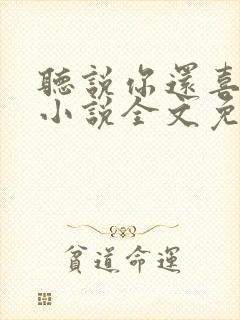 聽說你還喜
小說全文免
貧道命運